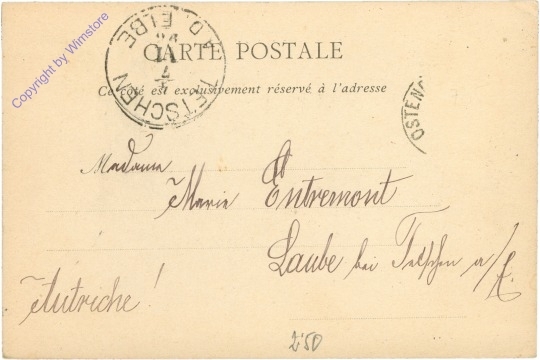 Copyright by Wimstore
TETSCHEN A.D. ELBE
CARTE POSTALE
Ce côté est exclusivement réservé à l'adresse
OSTEN
Madame
Marie Entremont
Laube bei Tetschen a/E.
Autriche!
2.50